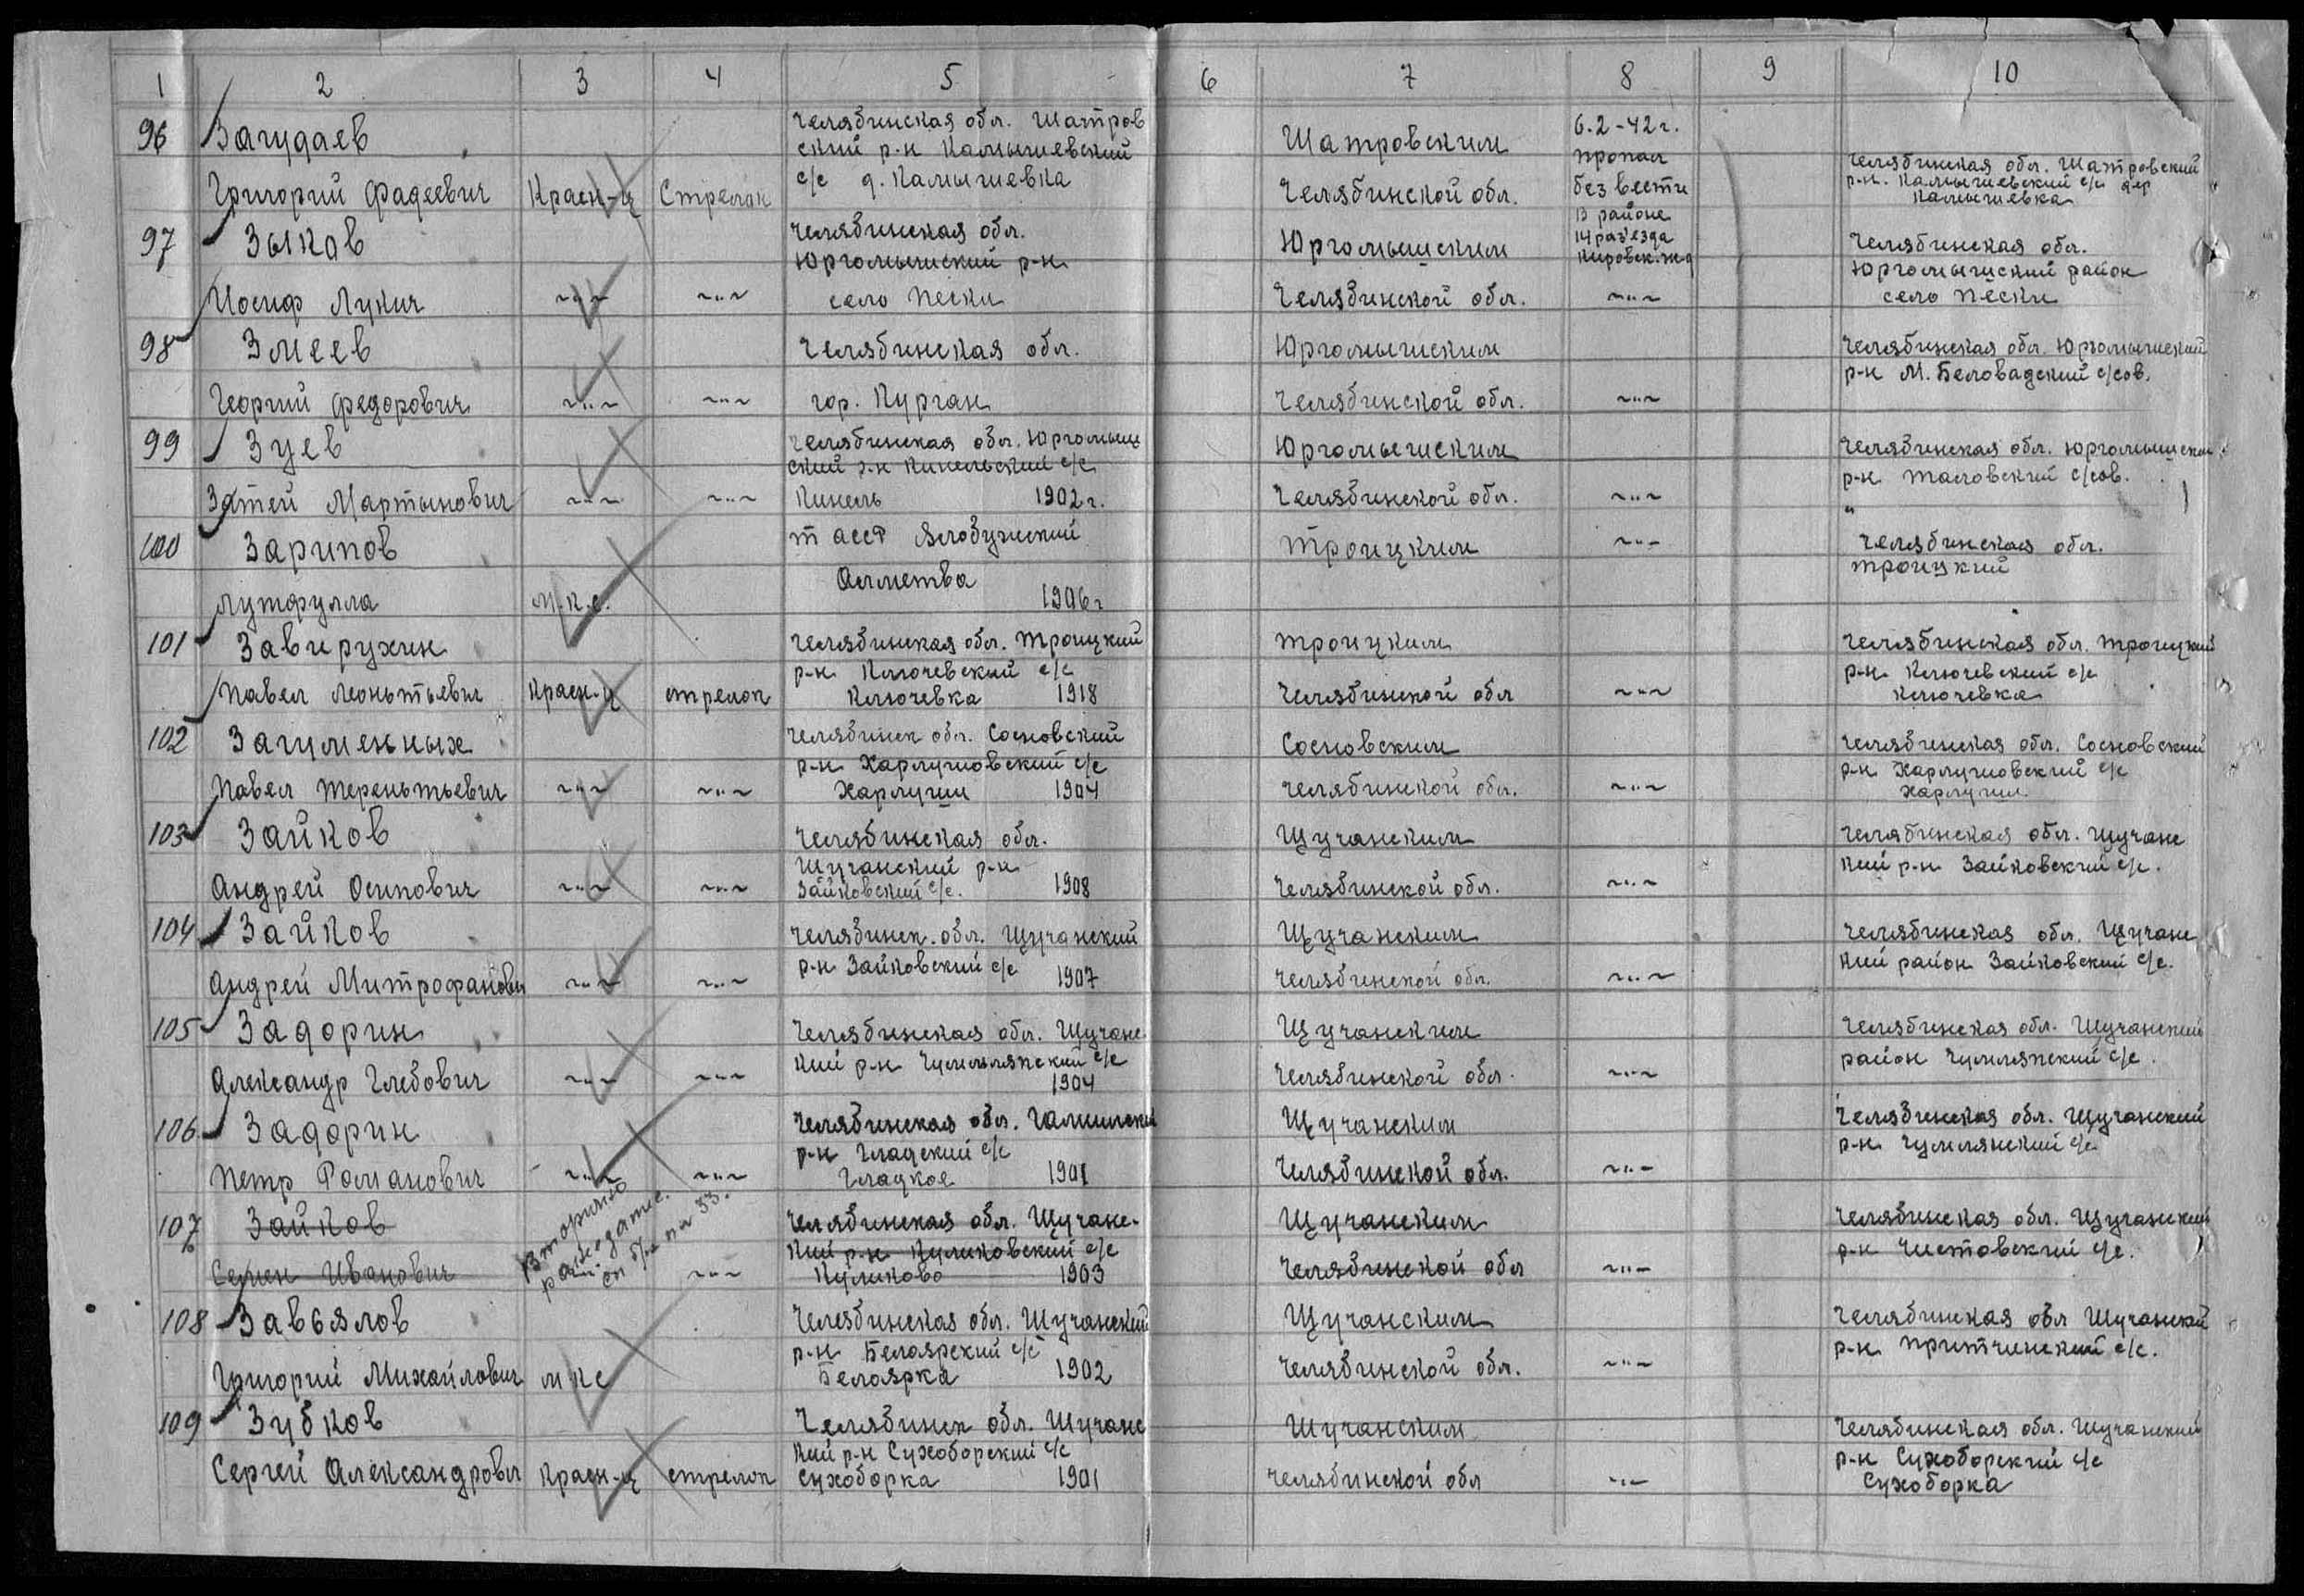 1 2 3 4 5 6 7 8 9 10
96 Загудаев Челябинская обл. Шатров Шатровским 6.2-42 г.
ский р-н Камышевский пропал Челябинская обл. Шатровский
Григорий Фадеевич Красн-ц Стрелок с/с д. Камышевка Челябинской обл. без вести р-н. Камышевский с/с дер
В районе Камышевка
97 Зыков Челябинская обл. Юргомышским 14 раз'езда Челябинская обл.
Юргомышский р-н Кировск. ж-д Юргомышский район
Иосиф Лукич ~"~ ~"~ село Пески Челябинской обл. ~"~ село Пески
98 Змеев Челябинская обл. Юргомышским Челябинская обл. Юргомышский
р-н М. Беловодский с/сов.
Георгий Федорович ~"~ ~"~ гор. Курган Челябинской обл. ~"~
99 Зуев Челябинская обл. Юргомыш Юргомышским Челябинская обл. Юргомышский
ский р-н Кипельский с/с р-н Таловский с/сов.
Мартынович ~"~ ~"~ Кипель 1902 г. Челябинской обл. ~"~ "
100 Зарипов Т АССР Троицким ~"~ Челябинская обл.
Троицкий
Лутфулла М.К.С. 1906 г
101 Завирухин Челябинская обл. Троицкий Троицким Челябинская обл. Троицкий
р-н Ключевский с/с р-н Ключевский с/с
Павел Леонтьевич Красн-ц стрелок Ключевка 1918 Челябинской обл ~"~ Ключевка
102 Загуменных Челябинск обл. Сосновский Сосновским Челябинская обл. Сосновский
р-н Харлушовский с/с р-н Харлушовский с/с
Павел Терентьевич ~"~ ~"~ Харлуши 1904 Челябинской обл. ~"~ Харлуши.
103 Зайков Челябинская обл. Щучанским Челябинская обл. Щучанс
Щучанский р-н кий р-н Зайковский с/с.
Андрей Осипович ~"~ ~"~ Зайковский с/с. 1908 Челябинской обл. ~"~
104 Зайков Челябинск. обл. Щучанский Щучанским Челябинская обл. Щучанс
р-н Зайковский с/с кий район Зайковский с/с.
Андрей Митрофанови ~"~ ~"~ 1907 Челябинской обл. ~"~
105 Задорин Челябинская обл. Щучанс Щучанским Челябинская обл. Щучанский
кий р-н Чумлякский с/с район Чумлякский с/с.
Александр Глебович ~"~ ~"~ 1904 Челябинской обл. ~"~
106 Задорин Челябинская обл. Щучанским Челябинская обл. Щучанский
р-н Гладский с/с р-н Чумлякский с/с.
Петр Романович ~"~ ~"~ Гладкое 1901 Челябинской обл. ~"~
107 Зайков Вторично Челябинская обл. Щучанс- Щучанским Челябинская обл. Щучанский
кий р-н Куликовский с/с р-н Чистовский с/с.
Семен Иванович ~"~ Куликово 1903 Челябинской обл ~"~
108 Завьялов Челябинская обл. Щучанский Щучанским Челябинская обл Щучанский
р-н Белоярский с/с р-н Притчинский с/с.
Григорий Михайлович МКС Белоярка 1902 Челябинской обл. ~"~
109 Зубков Челябинск обл. Щучанс Щучанским Челябинская обл. Щучанский
кий р-н Сухоборский с/с р-н Сухоборский с/с
Сергей Александрович Красн-ц стрелок Сухоборка 1901 Челябинской обл ~"~ Сухоборка